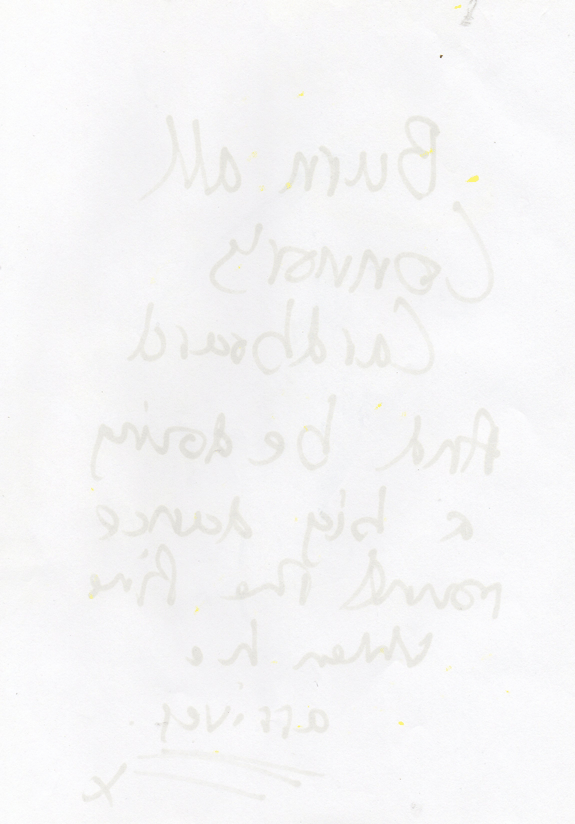 Burn all
Connor's
Cardboard
And be doing
a big dance
round the fire
when he
arrives
x